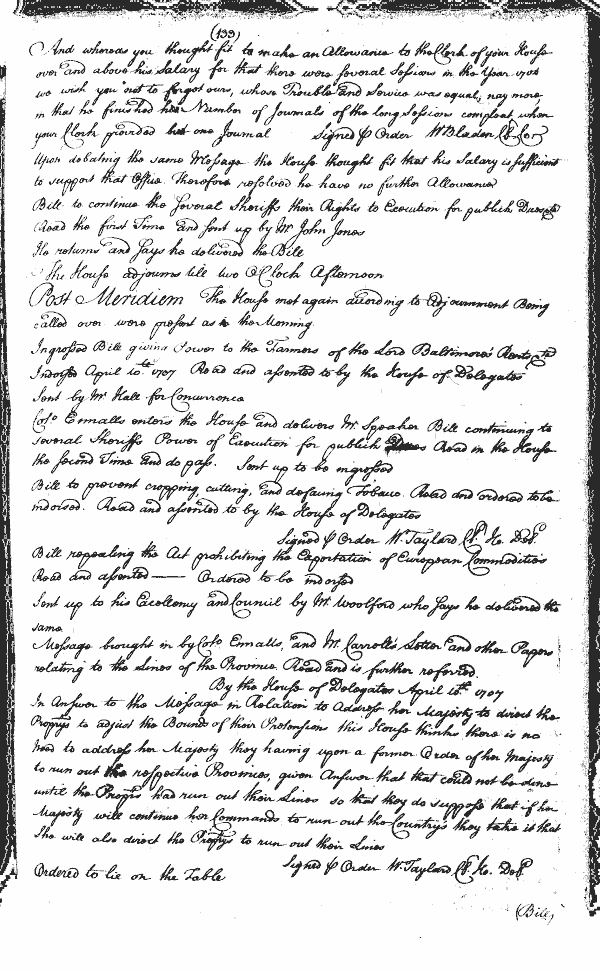 (133)
And whereas you thought fit to make an Allowance to the Clerk of your House
over and above his Salary for that there were several Sessions in the Year 1706
we wish you not to forgot ours, whose Trouble and Service was equal, nay more
in that he finished his Number of Journals of the long Sessions compleat when
your Clerk provided but one Journal Signed P Order W Bladen Cl. Co.
Upon debating the same Message the House thought fit that his Salary is sufficient
to support that Office. Therefore resolved he have no further Allowance
Bill to continue the several Sheriffs their Rights to Execution for publick Dues &ca
Read the first Time and sent up by Mr. John Jones
He returns and says he delivered the Bill
The House adjourns till two O Clock Afternoon
Post Meridiem The House met again according to Adjournment Being
called over were present as in the Morning
Ingrossed Bill giving Power to the Farmers of the Lord Baltimore's Rents &ca
Indorsed April 10th 1707 Read and assented to by the House of Delegates
Sent by Mr. Hall for Concurrence
Colo. Ennalls enters the House and delivers Mr. Speaker Bill continuing to
several Sheriffs Power of Execution for publick Dues Read in the House
the second Time and do pass. Sent up to be ingrossed
Bill to prevent cropping, cutting, and defacing Tobacco. Read and ordered to be
indorsed. Read and assented to by the House of Delegates
Signed P Order W. Taylard Cl. Ho. Del.
Bill repealing the Act prohibiting the Exportation of European Commodities
Read and assented — Ordered to be indorsed
Sent up to his Excellency and Council by Mr. Woolford who says he delivered the
same
Message brought in by Colo. Ennalls, and Mr. Carroll's Letter and other Papers
relating to the Lines of the Province. Read and is further referred.
By the House of Delegates April 10th 1707
In Answer to the Message in Relation to Address her Majesty to direct the
Proprys to adjust the Bounds of their Pretensions this House thinks there is no
need to address her Majesty they having upon a former Order of her Majesty
to run out the respective Provinces, given Answer that that could not be done
until the Proprs had run out their Lines so that they do suppose that if her
Majesty will continue her Commands to run out the Countrys they take it that
She will also direct the Proprys to run out their Lines
Signed P Order W. Taylard Cl. Ho. Del.
Ordered to lie on the Table
(Bill)